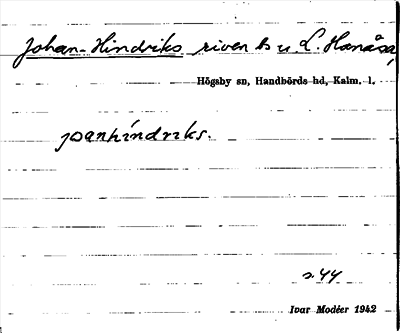 Johan-Hindriks riven b u. L. Hanåsa,
Högsby sn, Handbörds hd, Kalm. l.
joanhíndrıks.
s. 44
Ivar Modéer 1942